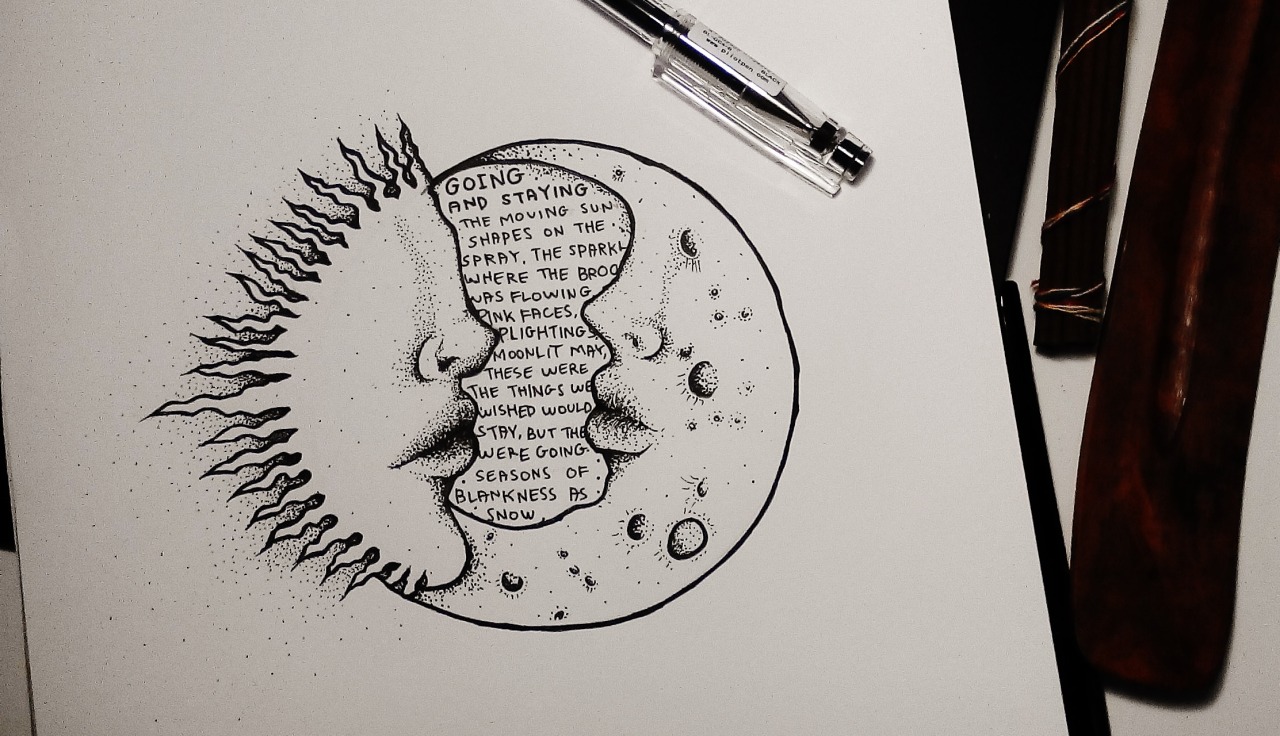 GOING
AND STAYING
THE MOVING SUN
SHAPES ON THE
SPRAY, THE SPARKL
WHERE THE BROO
WAS FLOWING
PINK FACES,
PLIGHTING,
MOONLIT MAY,
THESE WERE
THE THINGS WE
WISHED WOULD
STAY, BUT THE
WERE GOING.
SEASONS OF
BLANKNESS AS
SNOW,
BLACK
www.pilotpen.com